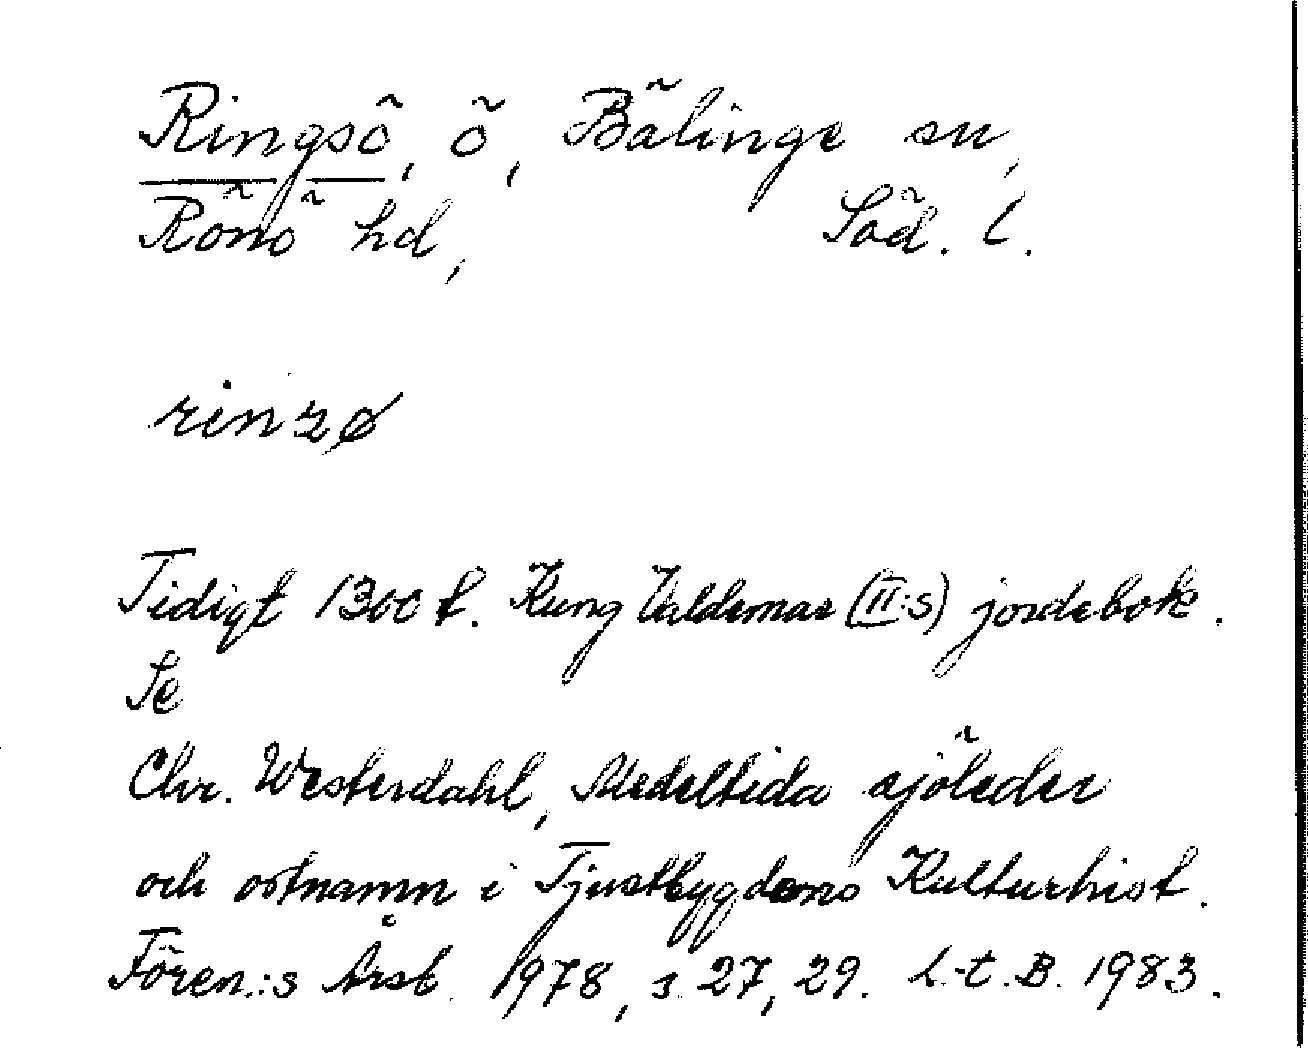 Ringsö, ö, Bälinge sn,
Rönö hd, Söd. l.
rinzø
Tidigt 1300 t. Kung Valdemar (II:s) jordebok.
Se
Chr. Westerdahl, Medeltida sjöleder
och ortnamn i Tjustbygdens Kulturhist.
Fören.:s Årsb. 1978, s. 27, 29. L-t. B. 1983.